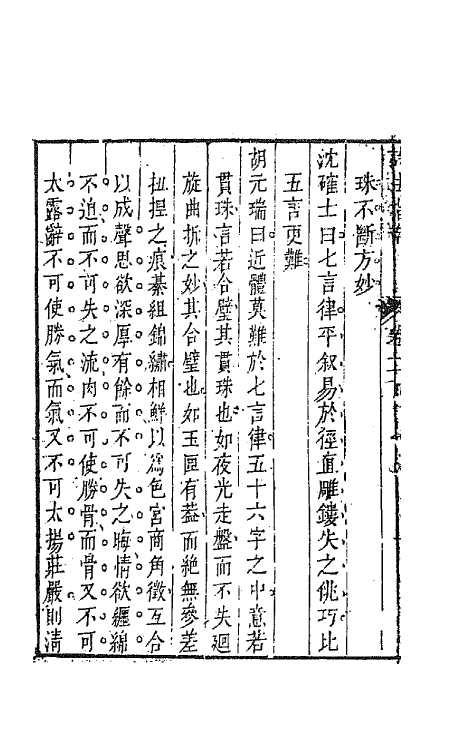 珠不斷方妙
沈確士曰七言律平叙易於徑直雕鏤失之佻巧比
五言更難
胡元瑞曰近體莫難於七言律五十六字之中意若
貫珠言若合璧其貫珠也如夜光走盤而不失迴
旋曲折之妙其合璧也如玉匣有葢而絶無參差
扭捏之痕綦組錦繡相鮮以爲色宮商角徵互合
以成聲思欲深厚有餘而不可失之晦情欲纒綿
不迫而不可失之流肉不可使勝骨而骨又不可
太露辭不可使勝氣而氣又不可太揚莊嚴則清